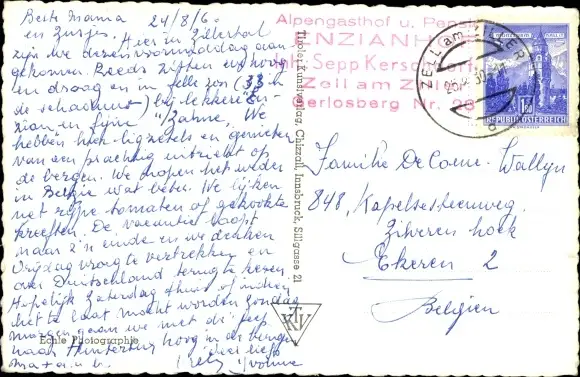 Beste Mama 24/8/6
en Zusjes. Hier in Zillertal
zijn we dezen voormiddag aan
gekomen. Reeds zitten we hoog
en droog en in felle zon (33 in
de schaduw) bij lekkere En
zian en fijne "Sahne". We
hebben hier ligzetels en genieten
van een prachtig uitzicht op
de bergen. We hopen het weder
in België wat beter. We lijken
net rijpe tomaten of gekookte
kreeften. De vacantie loopt
naar z'n einde en we denken
Vrijdag vroeg te vertrekken en
over Deutschland terug te keren.
Hopelijk Zaterdag thuis of indien
het te laat mocht worden Zondag
morgen gaan we met de jeep
naar Hintertux hoog in de bergen
Veel liefs
Yvonne
Echte Photographie
Tiroler Kunstverlag, Chizzali, Innsbruck, Sillgasse 21
TKV
Alpengasthof u. Pension
ENZIANH
Inh. Sepp Kersch
Zell am Zi
Gerlosberg Nr. 23
ZELL am
REPUBLIK ÖSTERREICH
1.50
Familie De Coene-Wallyn
848, Kapelsesteenweg
Zilveren hoek
Ekeren 2
Belgien